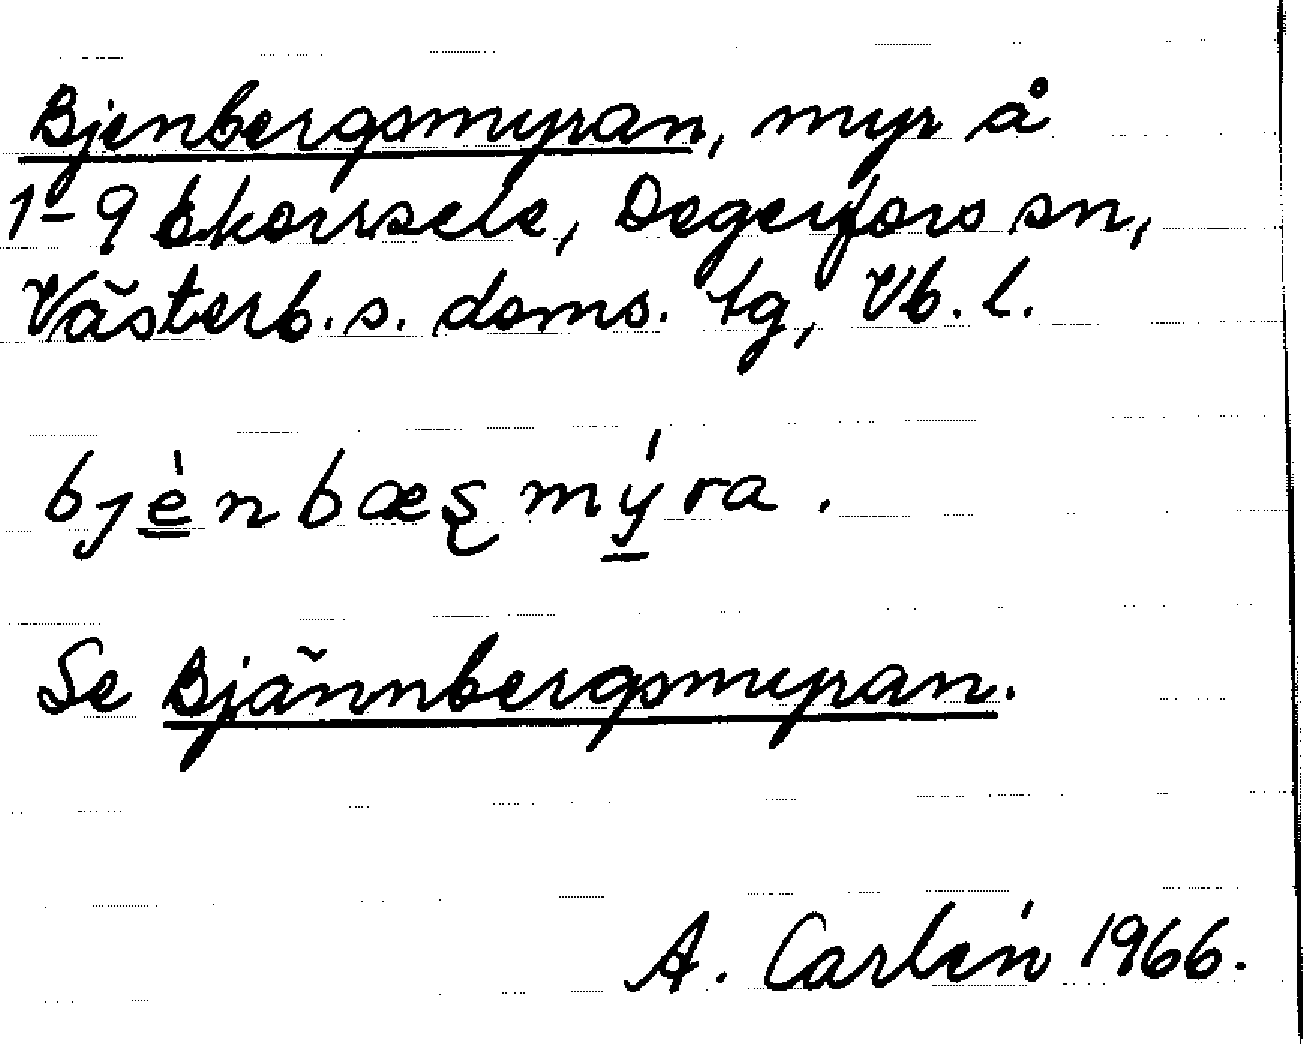 Bjenbergsmyran, myr å
1-9 Ekorrsele, Degerfors sn,
Västerb. s. doms. tg, Vb. l.
bjènbæʂmýra.
Se Bjännbergsmyran.
A. Carlén 1966.